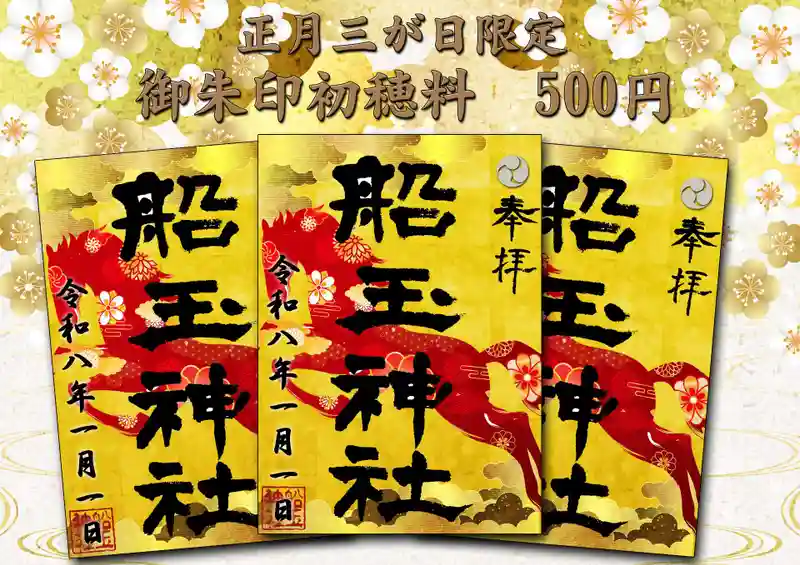 正月三が日限定
御朱印初穂料 500円
船玉神社
令和八年一月一日
奉拝
船玉神社
令和八年一月一日
奉拝
船玉神社